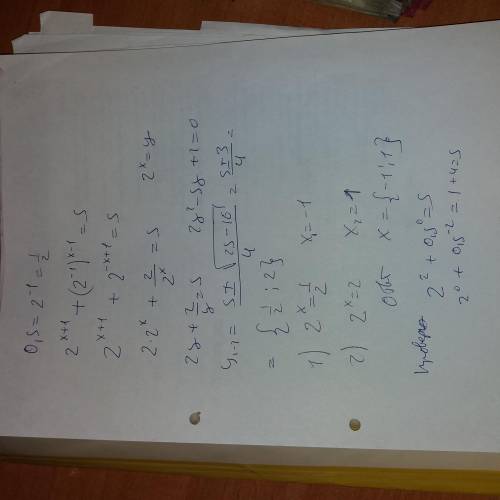 0,5 = 2^{-1} = \frac{1}{2}
2^{x+1} + (2^{-1})^{x-1} = 5
2^{x+1} + 2^{-x+1} = 5
2 \cdot 2^x + \frac{2}{2^x} = 5    2^x = y
2y + \frac{2}{y} = 5    2y^2 - 5y + 1 = 0
y_{1-2} = \frac{5 ± \sqrt{25-16}}{4} = \frac{5±3}{4} =
= { \frac{1}{2} ; 2 }
1) 2^x = \frac{1}{2}    x_1 = -1
2) 2^x = 2    x_2 = 1
Ответ x = { -1 ; 1 }
Проверка 2^2 + 0,5^0 = 5
2^0 + 0,5^{-2} = 1 + 4 = 5